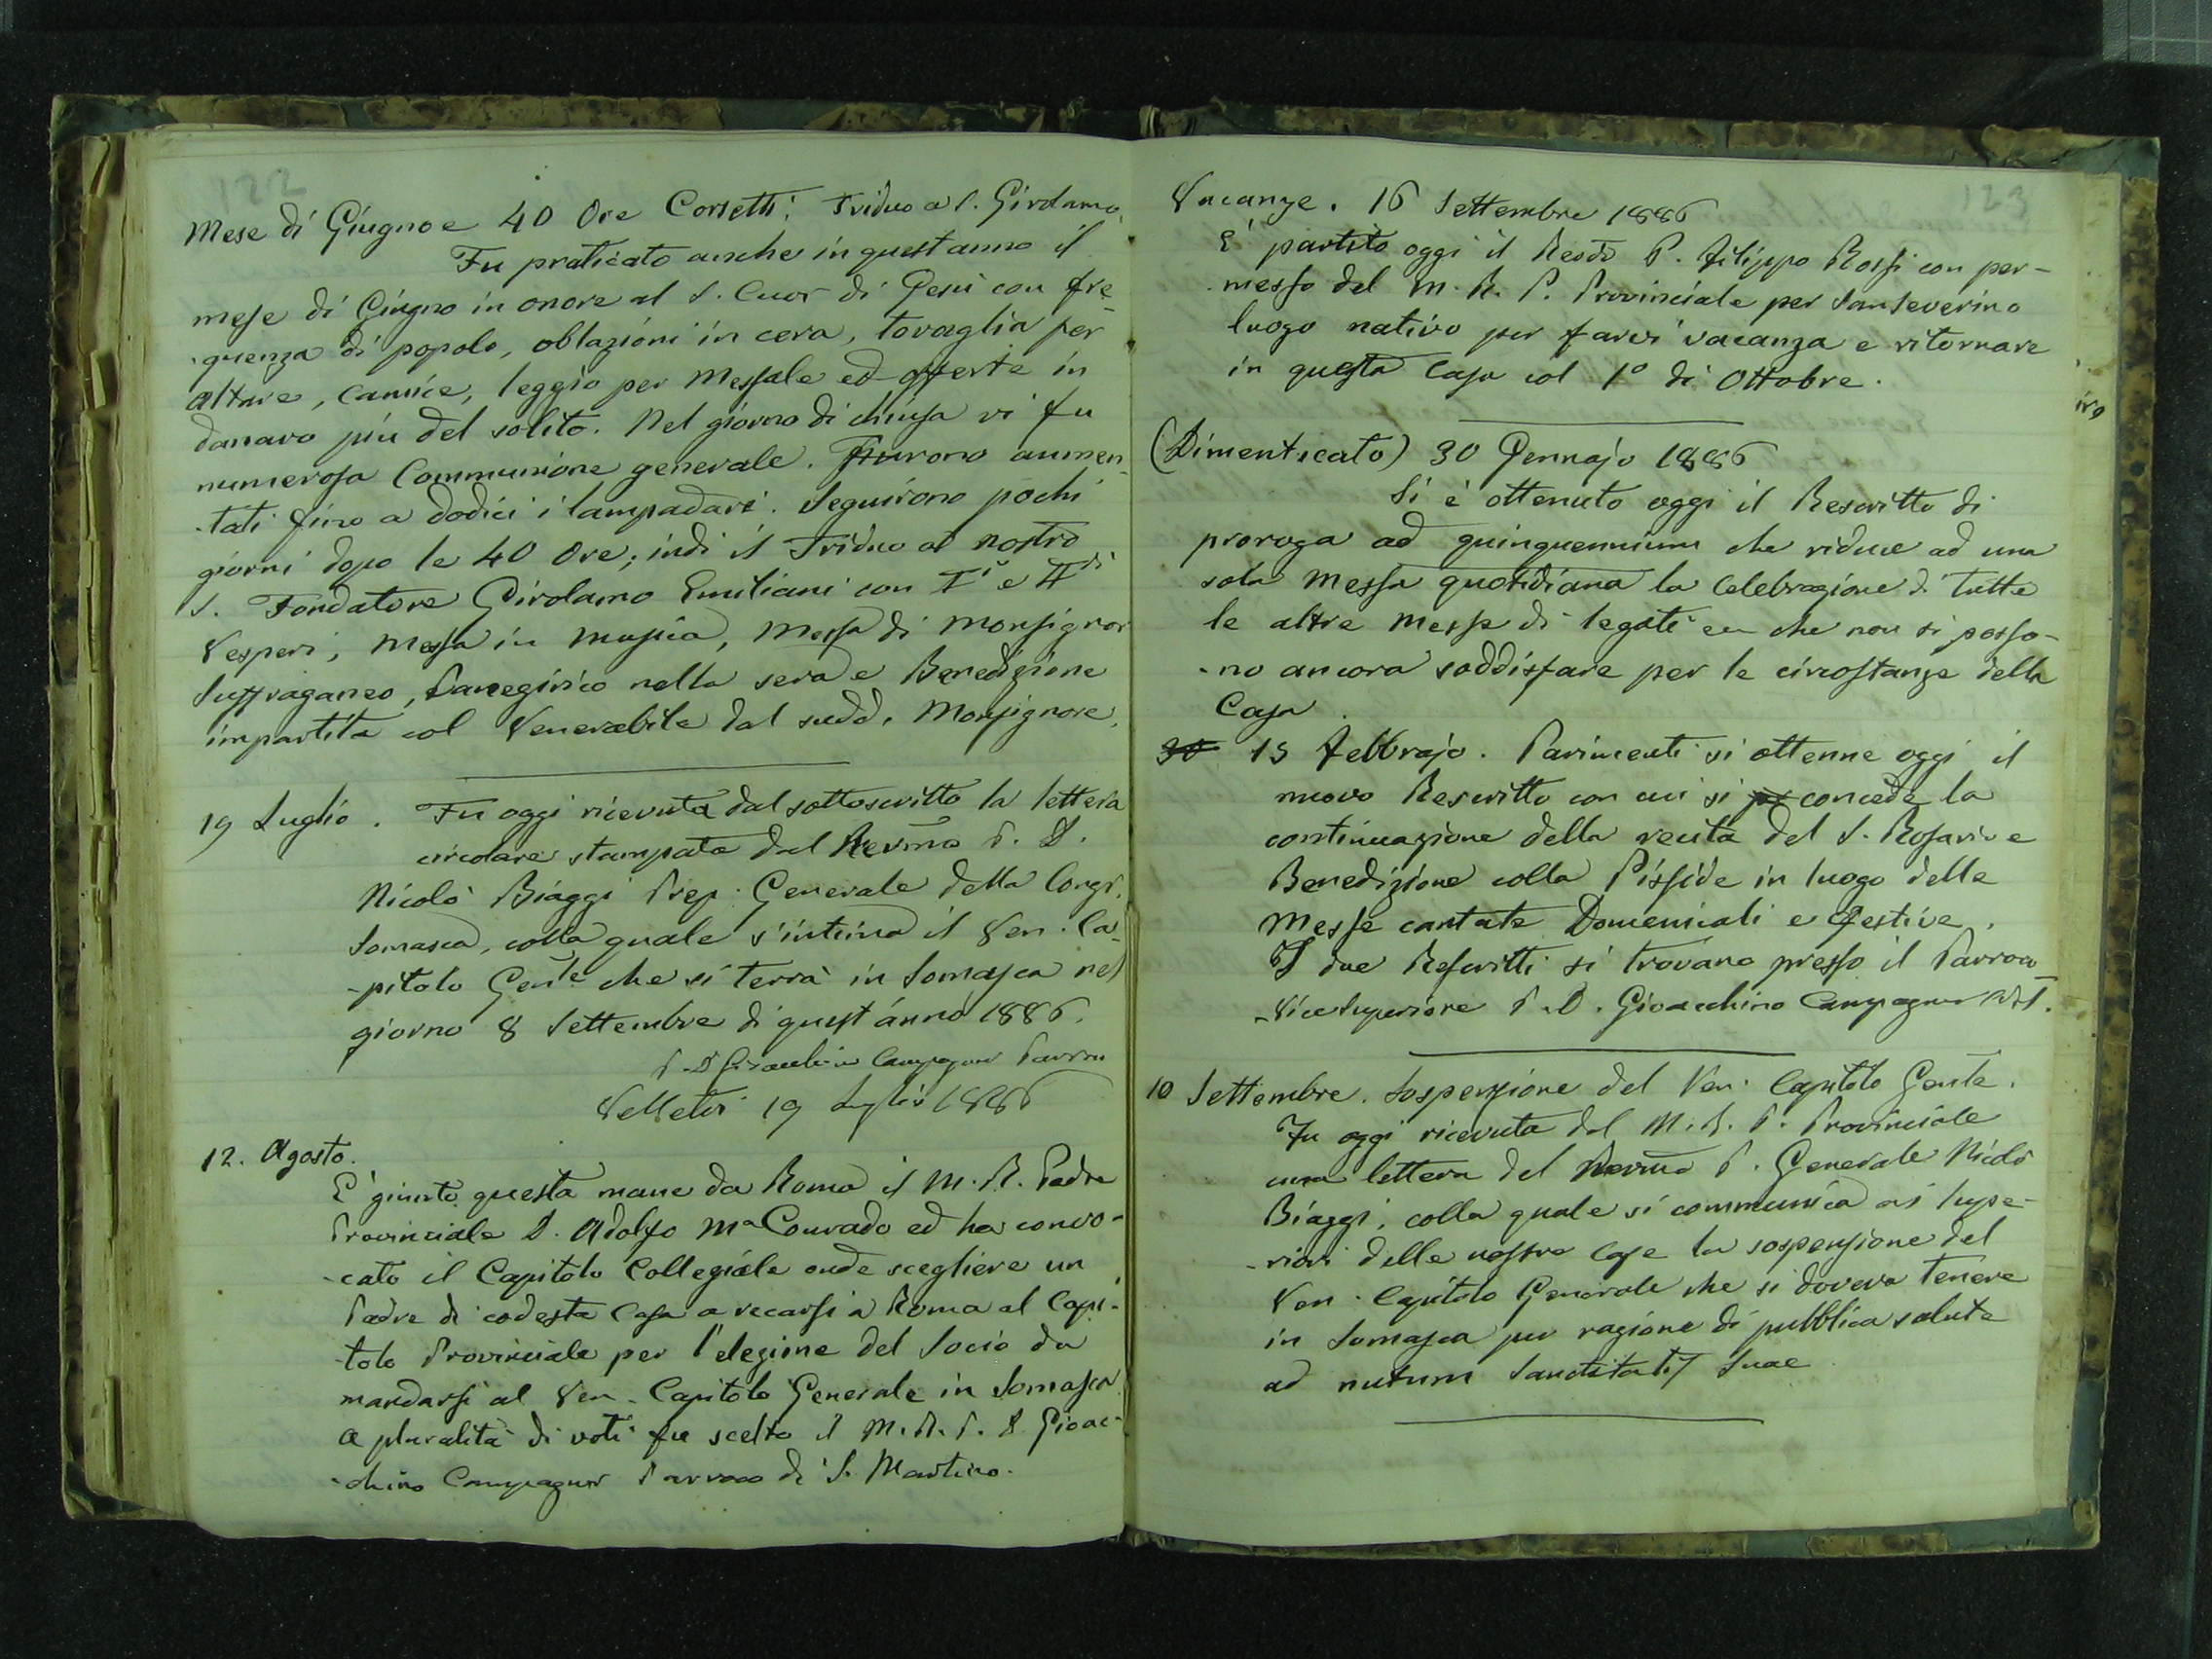 122
Mese di Giugno e 40 Ore Corsetti; Triduo a S. Girolamo
Fu praticato anche in quest anno il
mese di Giugno in onore al S. Cuor di Gesù con fre-
quenza di popolo, oblazioni in cera, tovaglia per
altare, camice, leggio per Messale ed offerte in
danaro più del solito. Nel giorno di chiusa vi fu
numerosa Communione generale. Furono aumen-
-tati fino a dodici i lampadari. Seguirono pochi
giorni dopo le 40 Ore; indi il Triduo al nostro
S. Fondatore Girolamo Emiliani con Ii e IIdi
Vesperi, Messa in musica, Messa di Monsignor
Suffraganeo, Panegirico nella sera e Benedizione
impartita col Venerabile dal sudd. Monsignore.
19 Luglio. Fu oggi ricevuta dal sottoscritto la lettera
circolare stampata del Revmo P. D.
Nicolò Biaggi Prep. Generale della Congr.
Somasca, colla quale s'intima il Ven. Ca-
-pitolo Genle che si terrà in Somasca nel
giorno 8 Settembre di quest'anno 1886.
P. D. Gioacchino Campagner Parroco
Velletri 19 Luglio 1886
12. Agosto.
E' giunto questa mane da Roma il M. R. Padre
Provinciale D. Adolfo Ma Conrado ed ha convo-
-cato il Capitolo Collegiale onde scegliere un
Padre di codesta Casa a recarsi a Roma al Capi-
-tolo Provinciale per l'elezione del Socio da
mandarsi al Ven. Capitolo Generale in Somasca.
A pluralità di voti fu scelto il M. R. P. D. Gioac-
-chino Campagner Parroco di S. Martino.
123
Vacanze. 16 Settembre 1886
E' partito oggi il P. Filippo Rossi con per-
-messo del M. R. P. Provinciale per Sanseverino
luogo nativo per farvi vacanza e ritornare
in questa Casa col 1o di Ottobre.
(Dimenticato) 30 Gennajo 1886
Si è ottenuto oggi il Rescritto di
proroga ad quinquennium che riduce ad una
sola Messa quotidiana la celebrazione di tutte
le altre Messe di legati che non si posso-
-no ancora soddisfare per le circostanze della
Casa.
30 15 Febbrajo. Parimenti si ottenne oggi il
nuovo Rescritto con cui si concede la
continuazione della recita del S. Rosario e
Benedizione colla Pisside in luogo delle
Messe cantate Domenicali e festive.
I due Rescritti si trovano presso il Parroco
-Vicesuperiore P. D. Gioacchino Campagner
10 Settembre. Sospensione del Ven. Capitolo Genle.
Fu oggi ricevuta dal M. R. P. Provinciale
una lettera del Revmo P. Generale Nicolò
Biaggi, colla quale si communica ai Supe-
-riori delle nostre Case la sospensione del
Ven. Capitolo Generale che si doveva tenere
in Somasca per ragione di pubblica salute
ad nutum Sanctitatis Suae